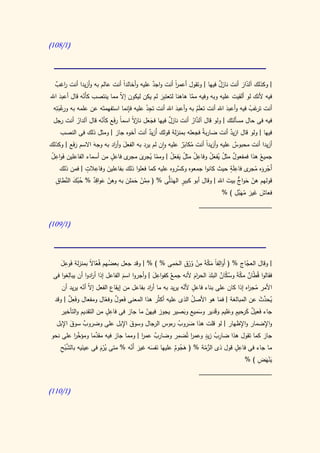 (108/1)
| وكذلك آلدارَ أنت نازلٌ فيها | وتقول أعمراً أنت واجدٌ عليه وأخالداً أنت عالم به وأزيدا أنت راغبٌ
فيه لأنك لو ألقيت عليه وبه وفيه ممّا هاهنا لتعتبر لم يكن ليكون إلاّ مما ينتصب كأنه قال أعبدَ الله
أنت ترغبُ فيه وأعبدَ الله أنت تعلّم به وأعبدَ الله أنت تجدُ عليه فإنما استفهمته عن علمه به ورغبته
فيه فى حال مسألتك | ولو قال آلدّارُ أنت نازلٌ فيها فجعل نازلاً اسماً رفعَ كأنه قال آلدار أنت رجل
فيها | ولو قال أزيدٌ أنت ضاربهُ فجعله بمنزلة قولك أزيدٌ أنت أخوه جاز | ومثل ذلك فى النصب
أزيدا أنت محبوسٌ عليه وأزيداً أنت مُكابَرٌ عليه وإن لم يرد به الفعل وأراد به وجهَ الاسم رَفَعَ | وكذلك
جميعُ هذا فمفعولٌ مثلُ يُفعَلُ وفاعلٌ مثلُ يَفعلُ | وممّا يُجرى مجرى فاعلٍ من أسماء الفاعلين فواعِلُ
أجروه مُجرى فاعلةٍ حيث كانوا جمعوه وكسّروه عليه كما فعلوا ذلك بفاعلينَ وفاعلاتٍ | فمن ذلك
قولهم هنّ حَواجُّ بيتَ الله | وقال أبو كبيرٍ الهذليُّ % ( ممّنْ حَمَلْن به وهنّ عَواقِدٌ % حُبُكَ النِّطاقِ
فعاش غيرَ مُهَبَّلِ ) %
(109/1)
| وقال العجّاج % ( أوالِفاً مكّةَ مِنْ وُرْقِ الحَمى % ) % | وقد جعل بعضُهم فُعّالاً بمنزلة فَواعلَ
فقالوا قُطّانٌ مكّةَ وسُكّانٌ البلدَ الحرامَ لأنه جمعٌ كفواعِلَ | وأجروا اسمَ الفاعل إذا أرادوا أن يبالغوا فى
الأمر مُجراه إذا كان على بناء فاعل لأنه يريد به ما أراد بفاعل من إيقاع الفعل إلاّ أنّه يريد أن
يُحدِّث عن المبالغة | فما هو الأصلُ الذى عليه أكثرُ هذا المعنى فَعولٌ وفعّال ومِفعال وفَعِلٌ | وقد
جاء فَعيلٌ كرحيمٍ وعليم وقديرٍ وسميع وبصير يجوز فيهنّ ما جاز فى فاعلٍ من التقديم والتأخير
والإضمار والإظهار | لو قلت هذا ضروبُ رءوس الرجال وسوقَ الإبل على وضروبٌ سوقَ الإبل
جاز كما تقول هذا ضاربُ زيدٍ وعمرا تُضمر وضاربٌ عمرا | ومما جاز فيه مقدَّما ومؤخَّرا على نحو
ما جاء فى فاعلٍ قول ذى الرُّمّة % ( هَجومٌ عليها نفسَه غيرَ أنّه % متى يُرْمَ فى عينيه بالشَّبْحِ
ينهَضِ ) %
(110/1)